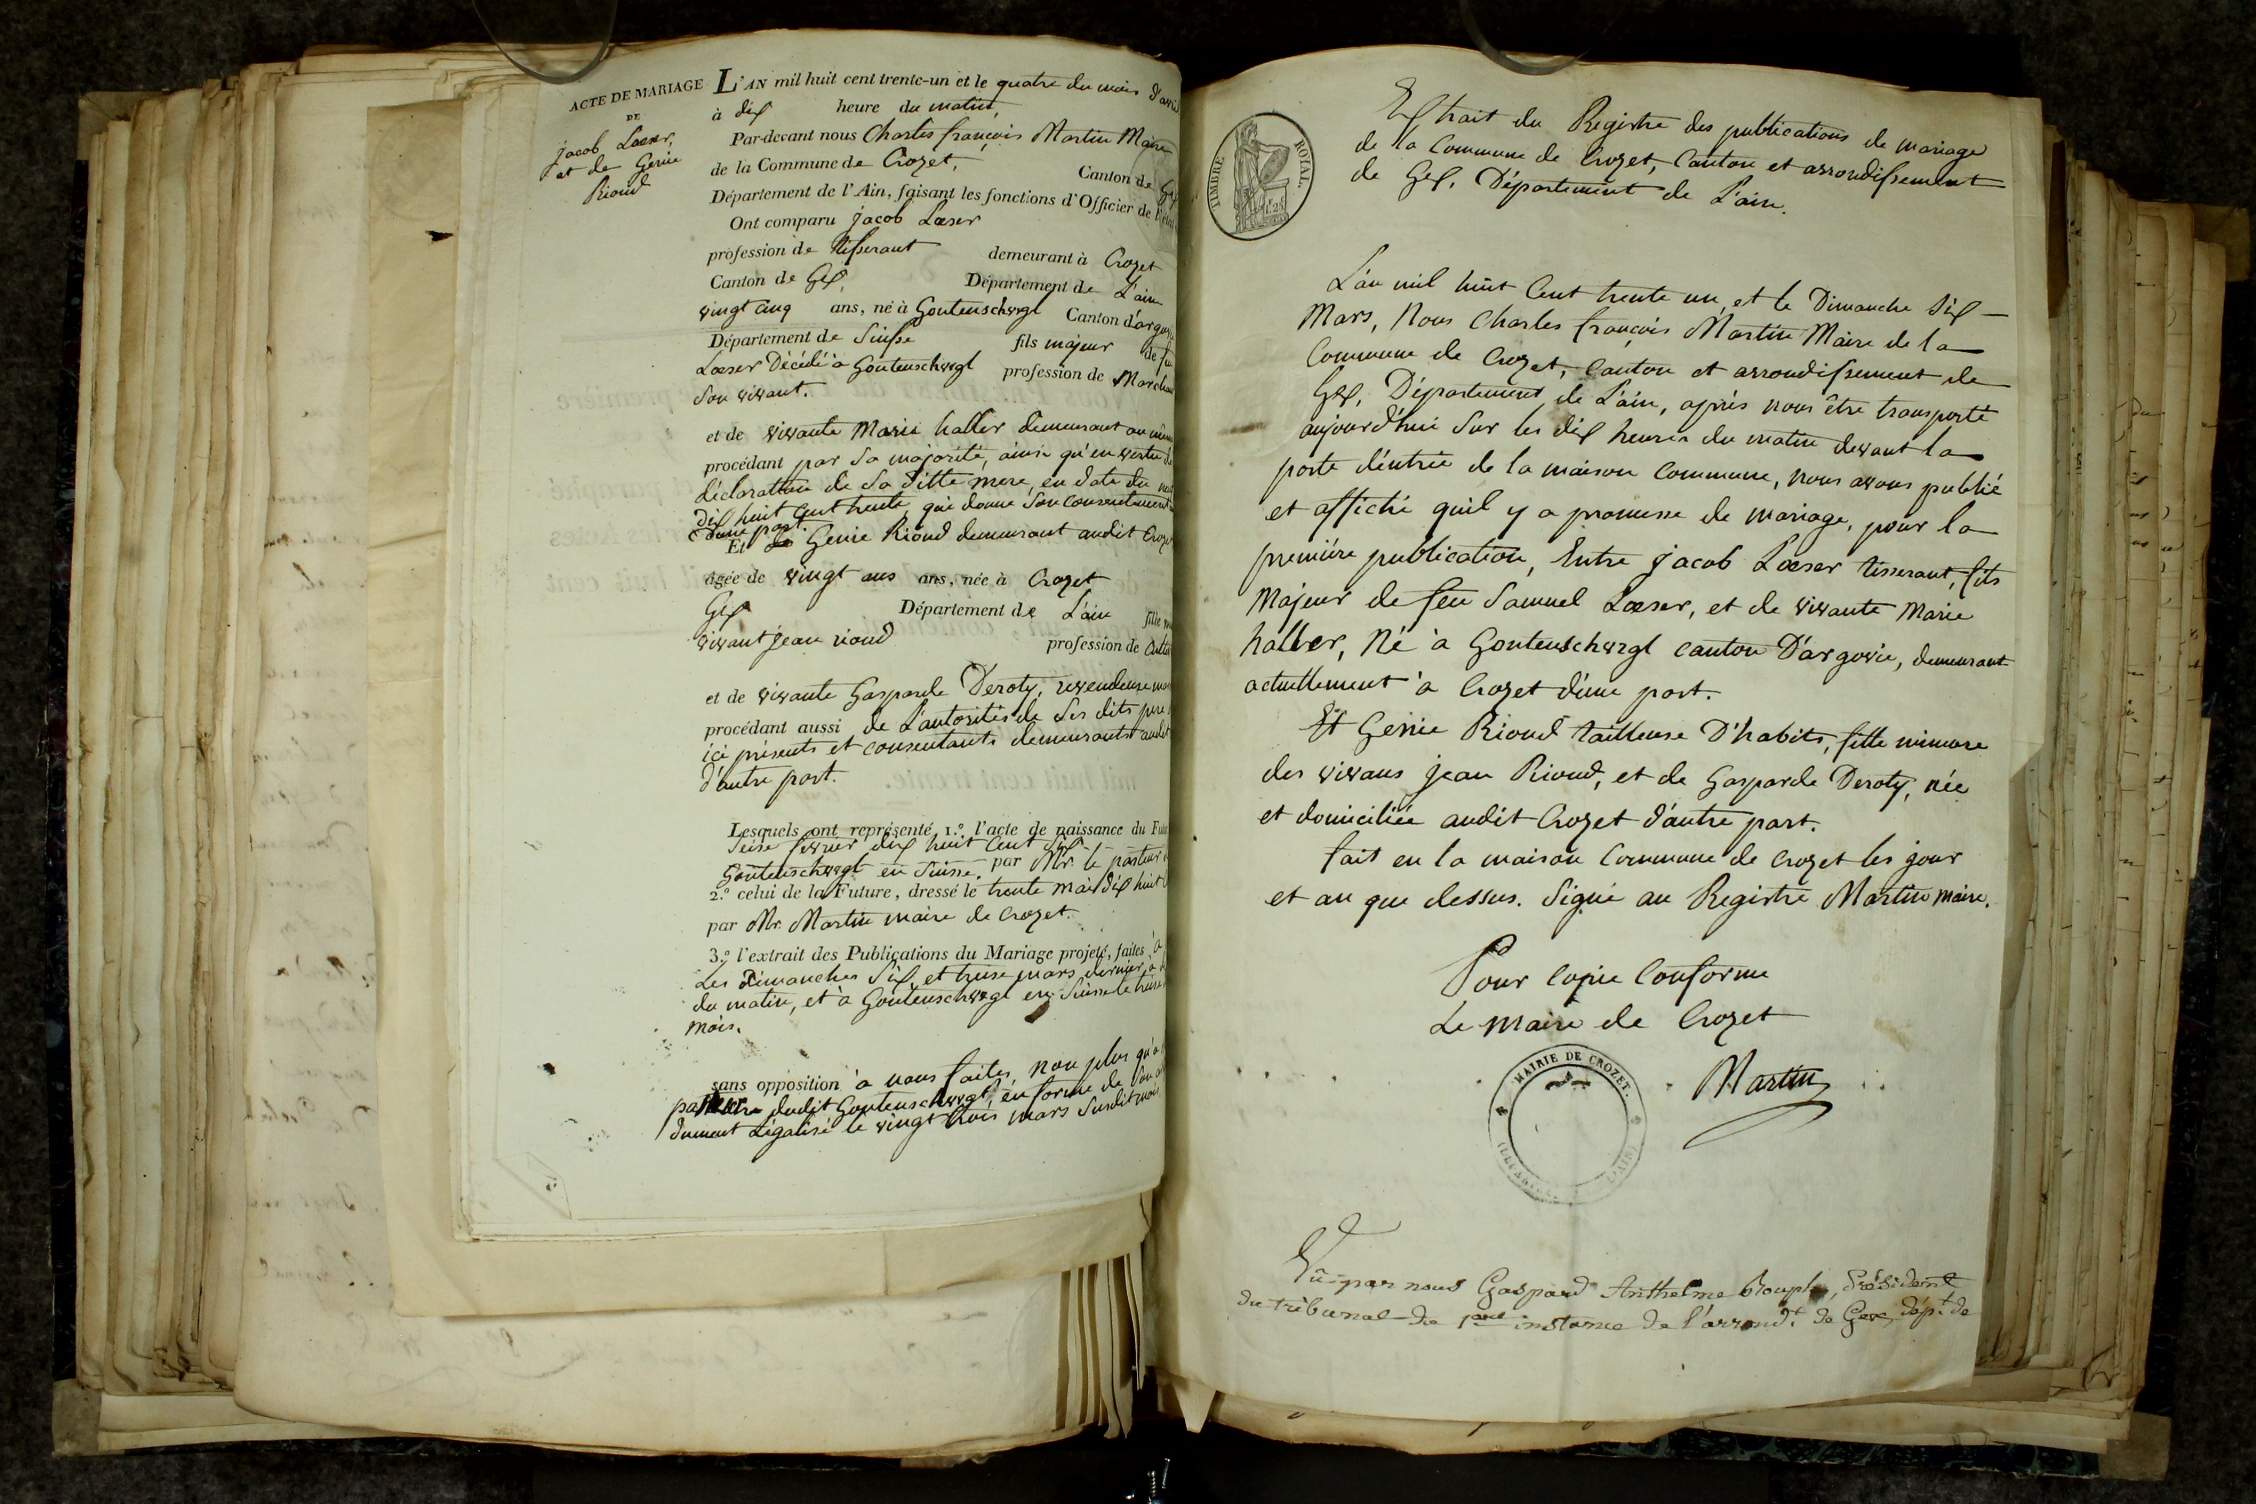 ACTE DE MARIAGE
DE
jacob Lœser,
et de Genie
Rioud
L'AN mil huit cent trente-un et le quatre du mois d'avril
à dix heure du matin,
Par-devant nous Charles françois Martin Maire
de la Commune de Crozet, Canton de Gex
Département de l'Ain, faisant les fonctions d'Officier de l'état
Ont comparu jacob Lœser
profession de tisserant demeurant à Crozet
Canton de Gex, Département de L'ain
vingt cinq ans, né à Gontenschwgl Canton d'argovie
Département de Suisse fils majeur de feu
Lœser Décédé à Gontenschwgl profession de Marchand
Son vivant.
et de vivante Marie haller demeurant au même
procédant par sa majorité, ainsi qu'en vertu de
déclaration de sa ditte mere, en date du
dix huit cent trente, qui donne son consentement
d'une part.
Et de Genie Rioud demeurant audit Crozet
agée de vingt ans ans, née à Crozet
Gex Département de L'ain fille
vivant jean rioud profession de
et de vivante Gasparde Deroty, revendeuse
procédant aussi de L'autorité de ses dits pere
ici présents et consentants demeurants audit
d'autre part.
Lesquels ont représenté 1.º l'acte de naissance du Futur
Seise fevrier dix huit Cent Six
Gontenschwgl en Suisse. par Mr. le pasteur
2.º celui de la Future, dressé le trente mai dix huit
par Mr. Martin maire de Crozet.
3.º l'extrait des Publications du Mariage projeté, faites à
Les dimanches Six et treise mars dernier, à
du matin, et à Gontenschwgl en Suisse le treise
mois.
sans opposition à nous faites, non plus qu'à
pasteur dudit Gontenschwgl, en forme de son
dument Légalisé le vingt trois mars Susdit mois
TIMBRE ROYAL
Extrait du Registre des publications de mariage
de la Commune de Crozet, Canton et arrondissement
de Gex. Département de L'ain.
L'an mil huit Cent trente un, et le Dimanche Six
Mars, Nous Charles françois Martin Maire de la
Commune de Crozet, Canton et arrondissement de
Gex, Département de L'ain, après nous être transporté
aujourd'hui Sur les dix heures du matin devant la
porte d'entrée de la maison Commune, nous avons publié
et affiché qu'il y a promesse de mariage, pour la
première publication, Entre jacob Lœser tisserant, fils
Majeur de feu Samuel Lœser, et de vivante Marie
haller, Né à Gontenschwgl canton D'argovie, demeurant
actuellement à Crozet d'une part.
Et Genie Rioud tailleuse D'habits, fille mineure
des vivans jean Rioud, et de Gasparde Deroty, née
et domiciliée audit Crozet d'autre part.
fait en la maison Commune de Crozet les jour
et an que dessus. Signé au Registre Martin maire.
Pour Copie Conforme
Le Maire de Crozet
MAIRIE DE CROZET.
Martin
Vû par nous Gaspard Anthelme Président
du tribunal de 1ere instance de l'arrond.t de Gex, dép.t de